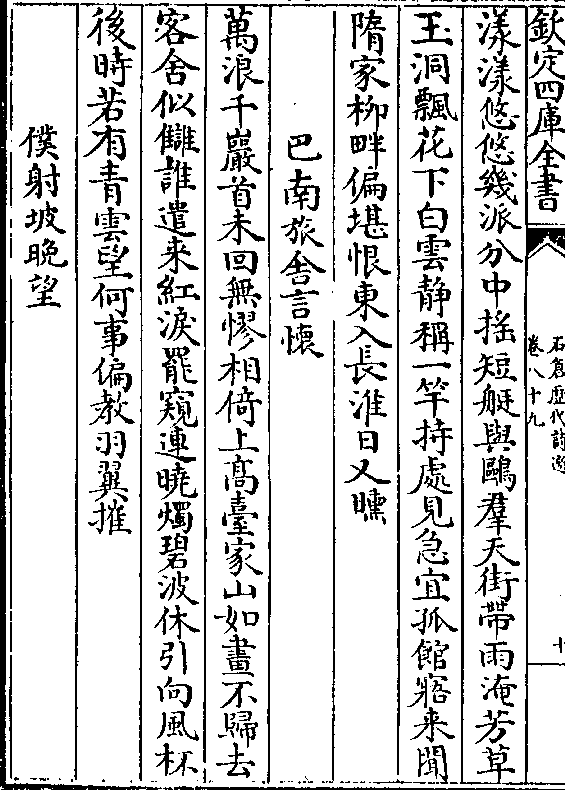 欽定四庫全書
石倉歷代詩選
卷八十九
十
漾漾悠悠幾派分中揺短艇與鷗羣天街帶雨淹芳草
玉洞飄花下白雲静稱一竿持處見急宜孤館寤来聞
隋家柳畔偏堪恨東入長淮日又曛
巴南旅舎言懷
萬浪千巖首未回無憀相倚上髙臺家山如畫不歸去
客舎似讎誰遣来紅淚罷窺連曉燭碧波休引向風杯
後時若有青雲望何事偏教羽翼摧
僕射坡晚望